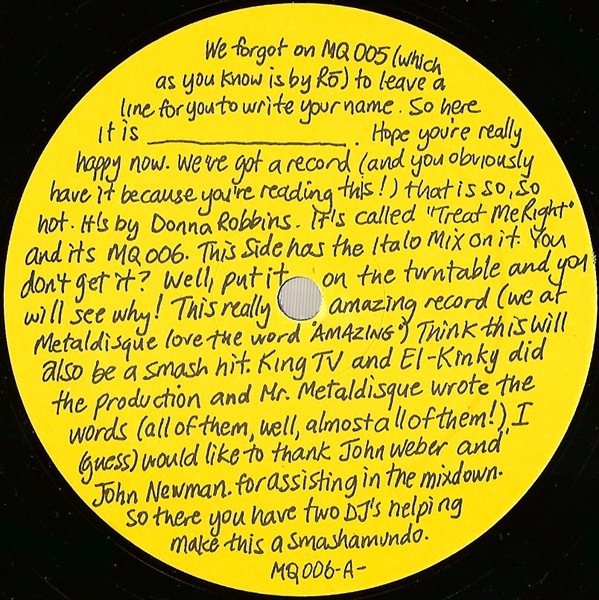 We forgot on MQ005 (which
as you know is by Rō) to leave a
line for you to write your name. So here
it is ____________________. Hope you're really
happy now. We've got a record (and you obviously
have it because you're reading this!) that is so, so
hot. It's by Donna Robbins. It's called "Treat Me Right"
and its MQ006. This side has the Italo Mix on it. You
don't get it? Well, put it on the turntable and you
will see why! This really amazing record (we at
Metaldisque love the word "AMAZING") Think this will
also be a smash hit. King TV and El-Kinky did
the production and Mr. Metaldisque wrote the
words (all of them, well, almost all of them!), I
(guess) would like to thank John Weber and
John Newman. for assisting in the mixdown.
So there you have two DJ's helping
make this a smashamundo.
MQ006-A-